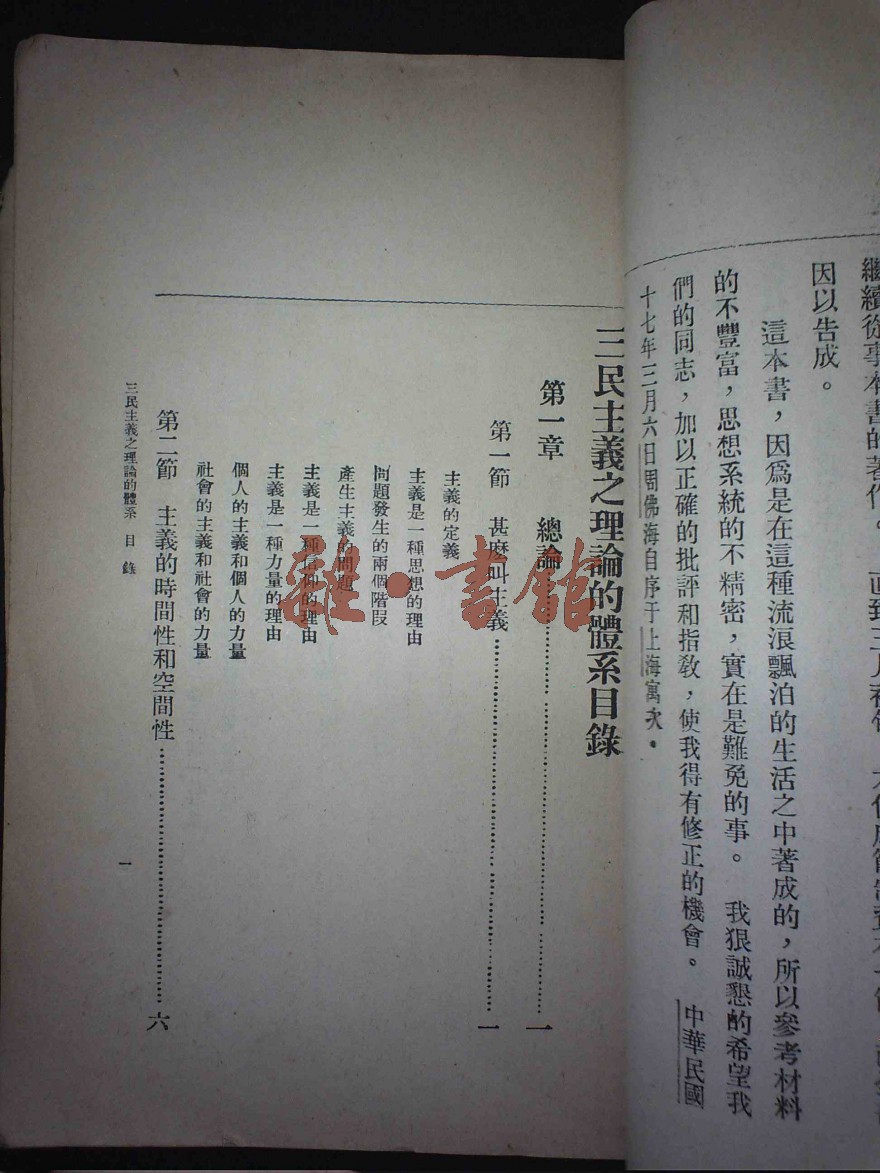 繼續從事本書的著作。
因以告成。
這本書，因爲是在這種流浪飄泊的生活之中著成的，所以參考材料
的不豐富，思想系統的不精密，實在是難免的事。我狠誠懇的希望我
們的同志，加以正確的批評和指敎，使我得有修正的機會。中華民國
十七年三月六日周佛海自序于上海寓次。
三民主義之理論的體系目錄
第一章 總論……一
第一節 甚麽叫主義……一
主義的定義
主義是一種思想的理由
問題發生的兩個階段
產生主義的問題
主義是一種信仰的理由
主義是一種力量的理由
個人的主義和個人的力量
社會的主義和社會的力量
第二節 主義的時間性和空間性……六
三民主義之理論的體系 目錄
一
雜·書館